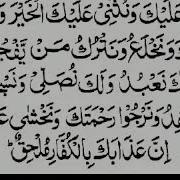 عَلَيْكَ وَنُثْنِيْ عَلَيْكَ الْخَيْرَ وَ
وَنَخْلَعُ وَنَتْرُكُ مَنْ يَّفْجُ
كَ نَعْبُدُ وَلَكَ نُصَلِّيْ وَنَسْ
وَنَرْجُوْا رَحْمَتَكَ وَنَخْشٰى عَ
اِنَّ عَذَابَكَ بِالْكُفَّارِ مُلْحِقٌ